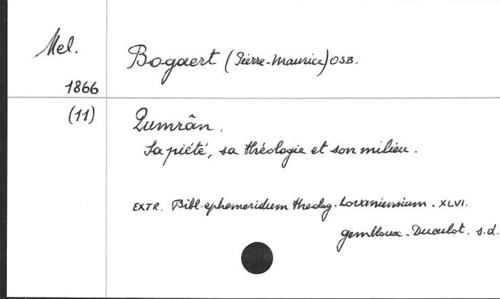 Mel.
1866
(11)
Bogaert (Pierre-Maurice) OSB.
Qumrân.
Sa piété, sa théologie et son milieu.
EXTR. Bibl. ephemeridum theolog. Lovaniensium. XLVI.
Gembloux-Duculot. s.d.